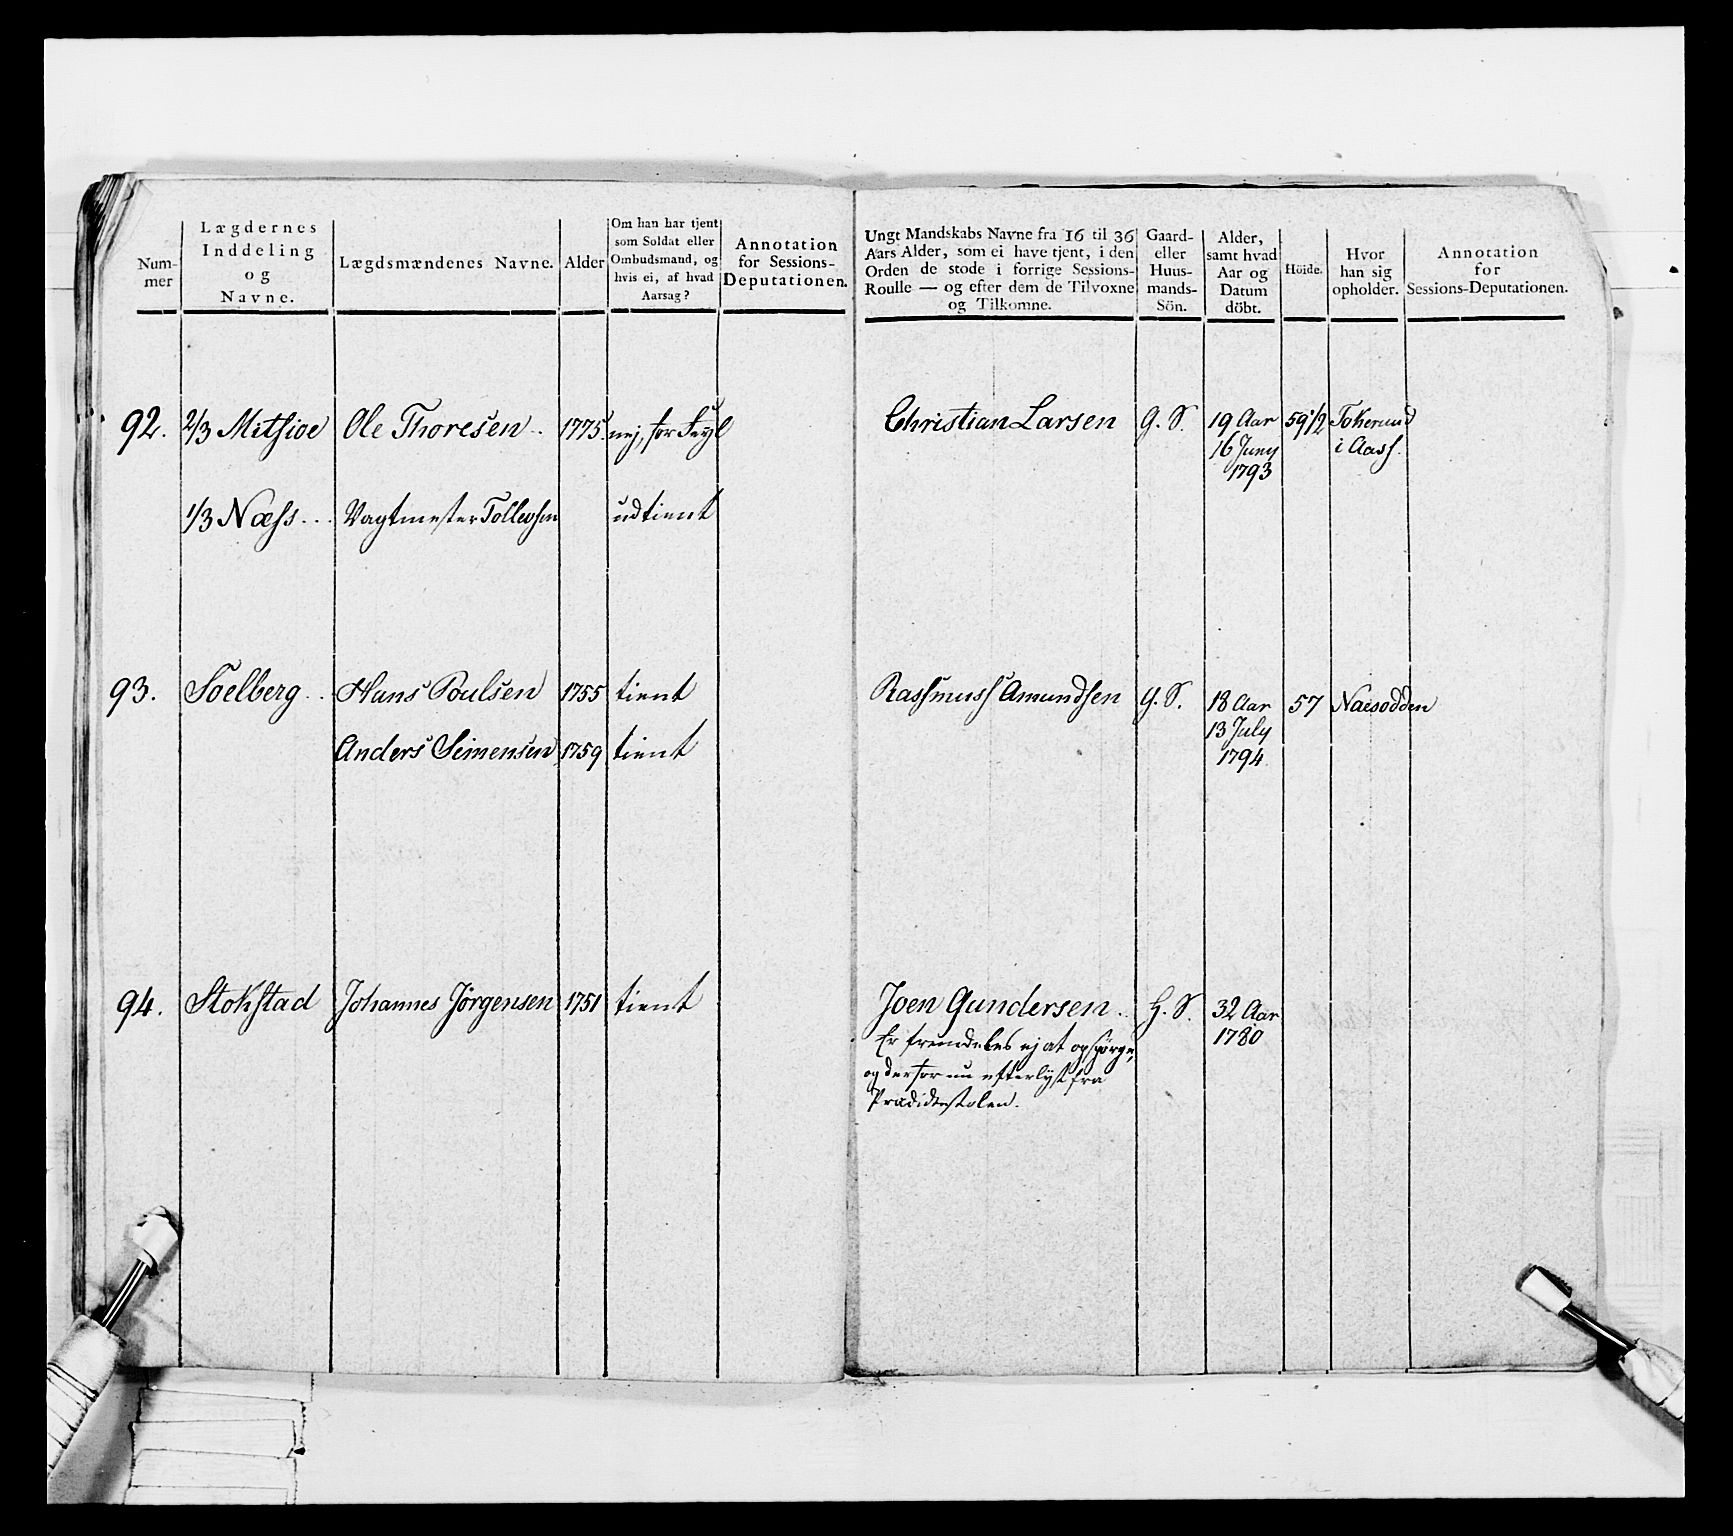 Num-
mer
Lægdernes
Inddeling
og
Navne.
Lægdsmændenes Navne.
Alder
Om han har tjent
som Soldat eller
Ombudsmand, og
hvis ei, af hvad
Aarsag?
Annotation
for Sessions-
Deputationen.
92. 2/3 Mitsioe Ole Thoresen .. 1775 nej, for Feyl
1/3 Næss ... Vagtmester Tollevsen udtient
93. Soelberg .. Hans Poulsen 1755 tient
Anders Seimensen 1759 tient
94. Stokstad Johannes Jörgensen 1751 tient
Ungt Mandskabs Navne fra 16 til 36
Aars Alder, som ei have tjent, i den
Orden de stode i forrige Sessions-
Roulle — og efter dem de Tilvoxne
og Tilkomne.
Gaard-
eller
Huus-
mands-
Sön.
Alder,
samt hvad
Aar og
Datum
döbt.
Höide.
Hvor
han sig
opholder.
Annotation
for
Sessions-Deputationen.
Christian Larsen G. S. 19 Aar 59 1/2 Tokerud
16 Juny i Aass.
1793
Rassmuss Amundsen G. S. 18 Aar 57 Naesodden
13 July
1794
Joen Gundersen .. H. S. 32 Aar
Er fremdeles ej at opspörge, 1780
og derfor nu efterlyst fra